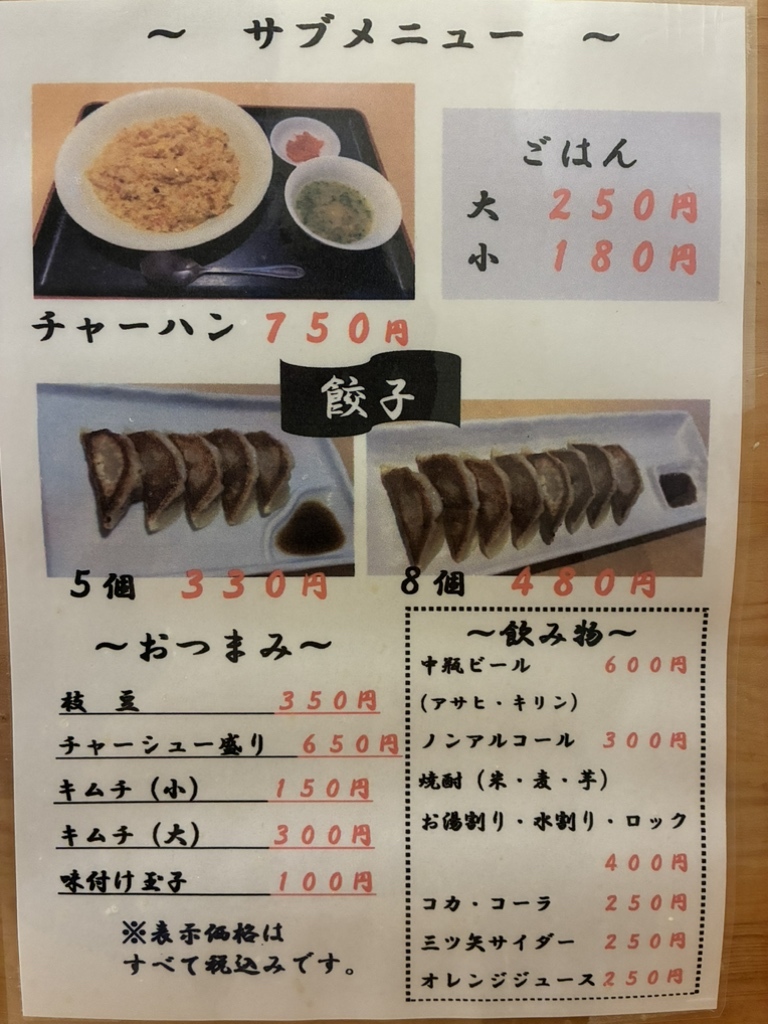 ～ サブメニュー ～
ごはん
大 250円
小 180円
チャーハン 750円
餃子
5個 330円
8個 480円
～おつまみ～
枝豆 350円
チャーシュー盛り 650円
キムチ（小） 150円
キムチ（大） 300円
味付け玉子 100円
※表示価格は
すべて税込みです。
～飲み物～
中瓶ビール 600円
（アサヒ・キリン）
ノンアルコール 300円
焼酎（米・麦・芋）
お湯割り・水割り・ロック
400円
コカ・コーラ 250円
三ツ矢サイダー 250円
オレンジジュース 250円